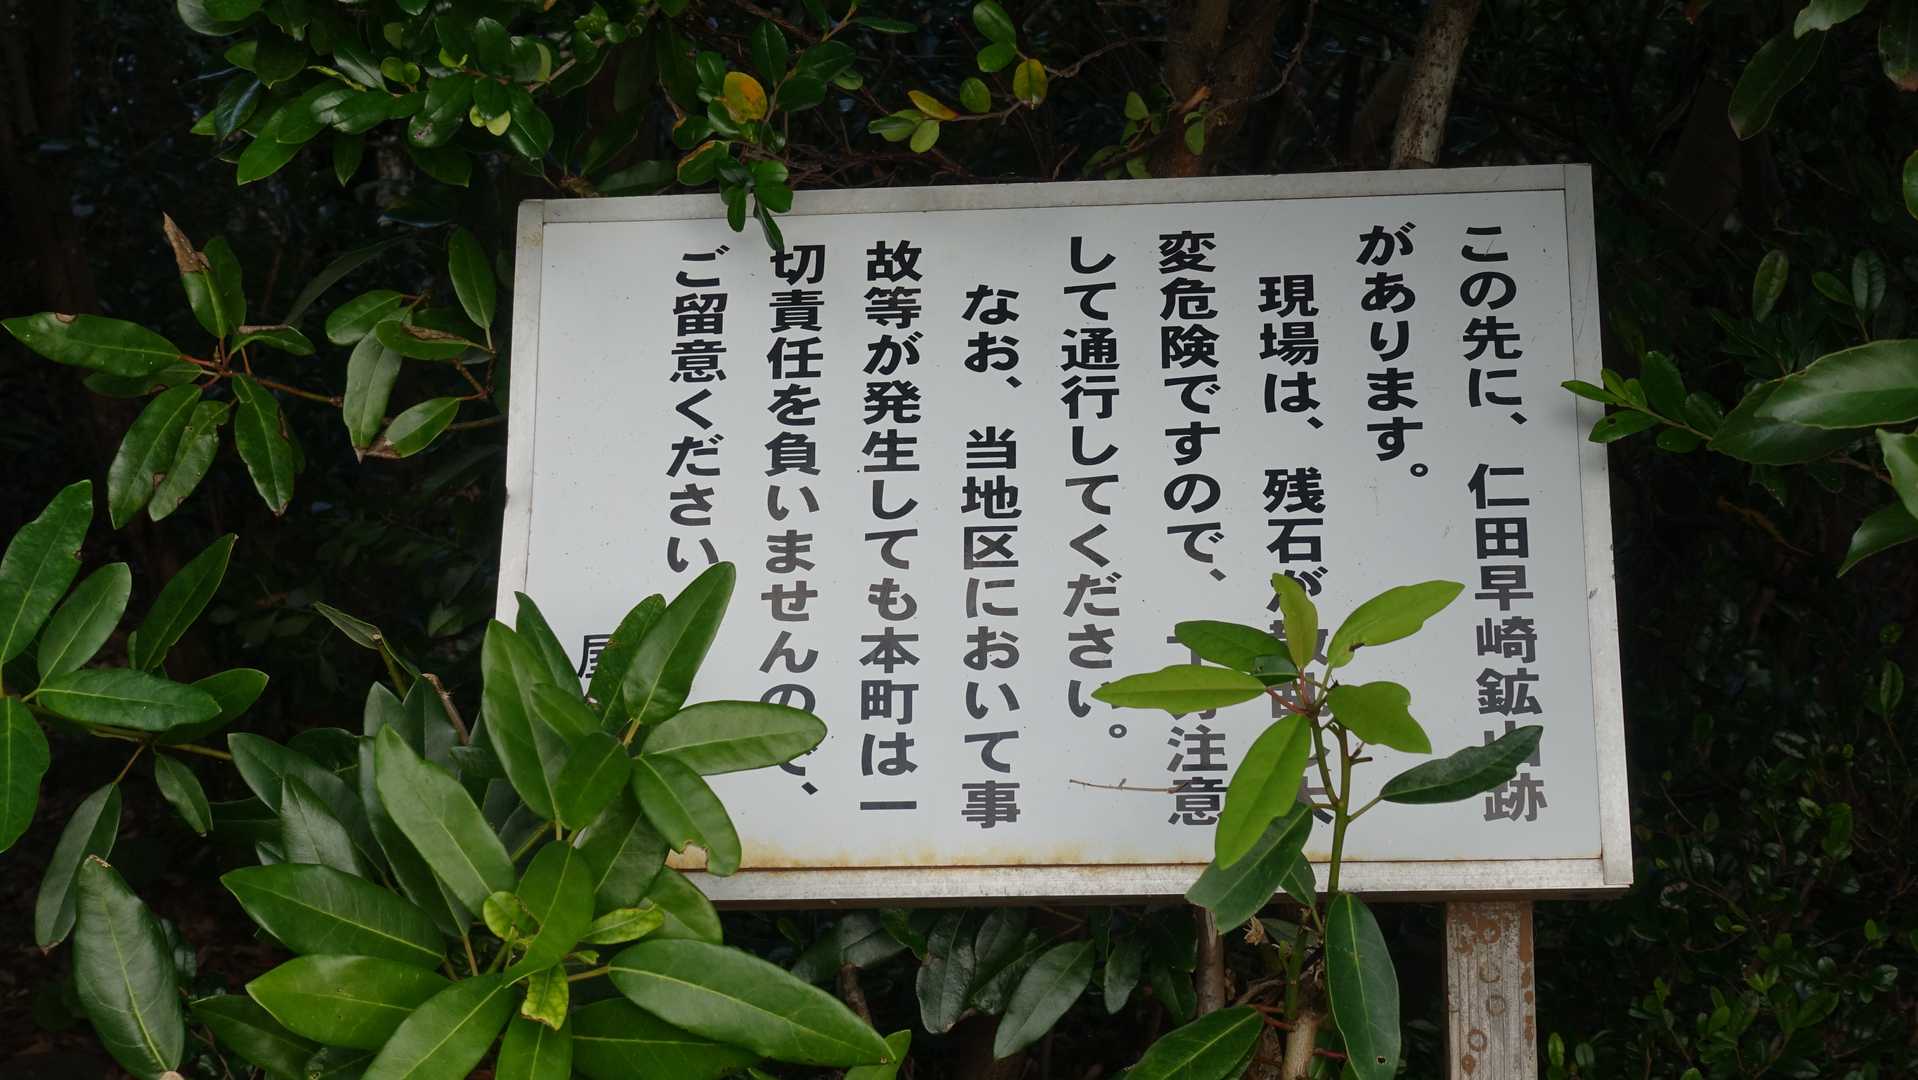 この先に、仁田早崎鉱山跡
があります。
現場は、残石が散乱し大
変危険ですので、十分注意
して通行してください。
なお、当地区において事
故等が発生しても本町は一
切責任を負いませんので、
ご留意ください
屋